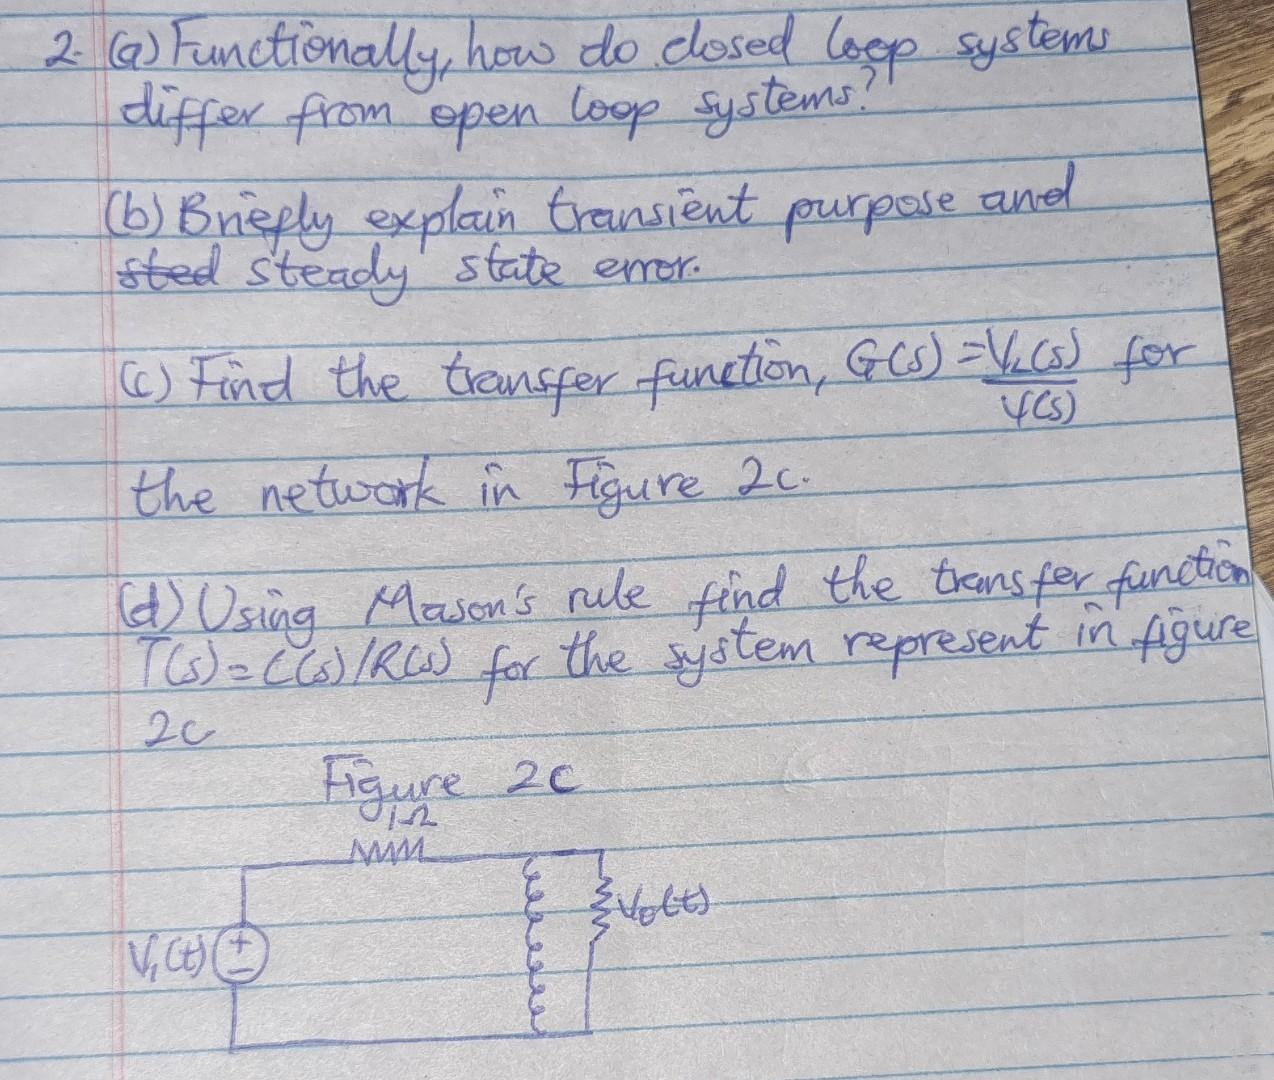 2. (a) Functionally, how do closed loop systems
differ from open loop systems?
(b) Briefly explain transient purpose and
sted steady state error.
(c) Find the transfer function, G(s) = VL(s)/V(s) for
the network in Figure 2c.
(d) Using Mason's rule find the transfer function
T(s) = C(s)/R(s) for the system represent in figure
2c
Figure 2c
1Ω
V₁(t) + −
Vo(t)